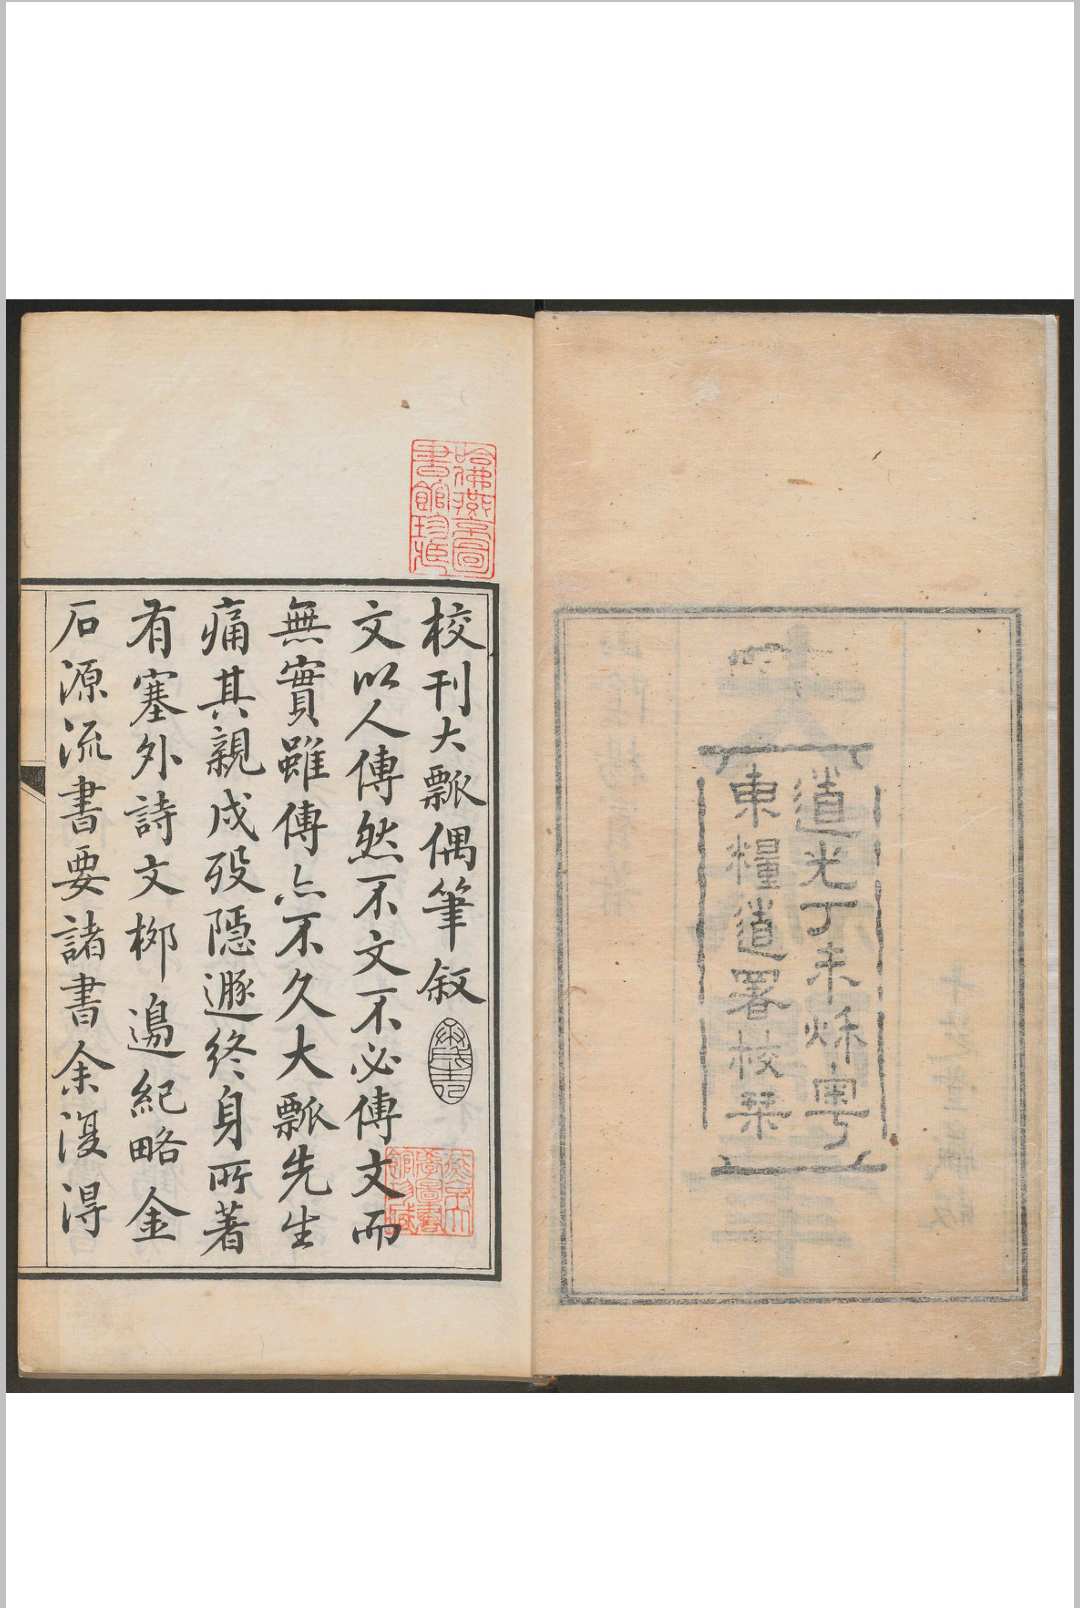 道光丁未秌粵
東糧道署校栞
校刊大瓢偶筆叙
文以人傳然不文不必傳文而
無實雖傳亦不久大瓢先生
痛其親戍歿隱遯終身所著
有塞外詩文栁邊紀略金
石源流書要諸書余復得
哈佛燕京圖
書館珍藏